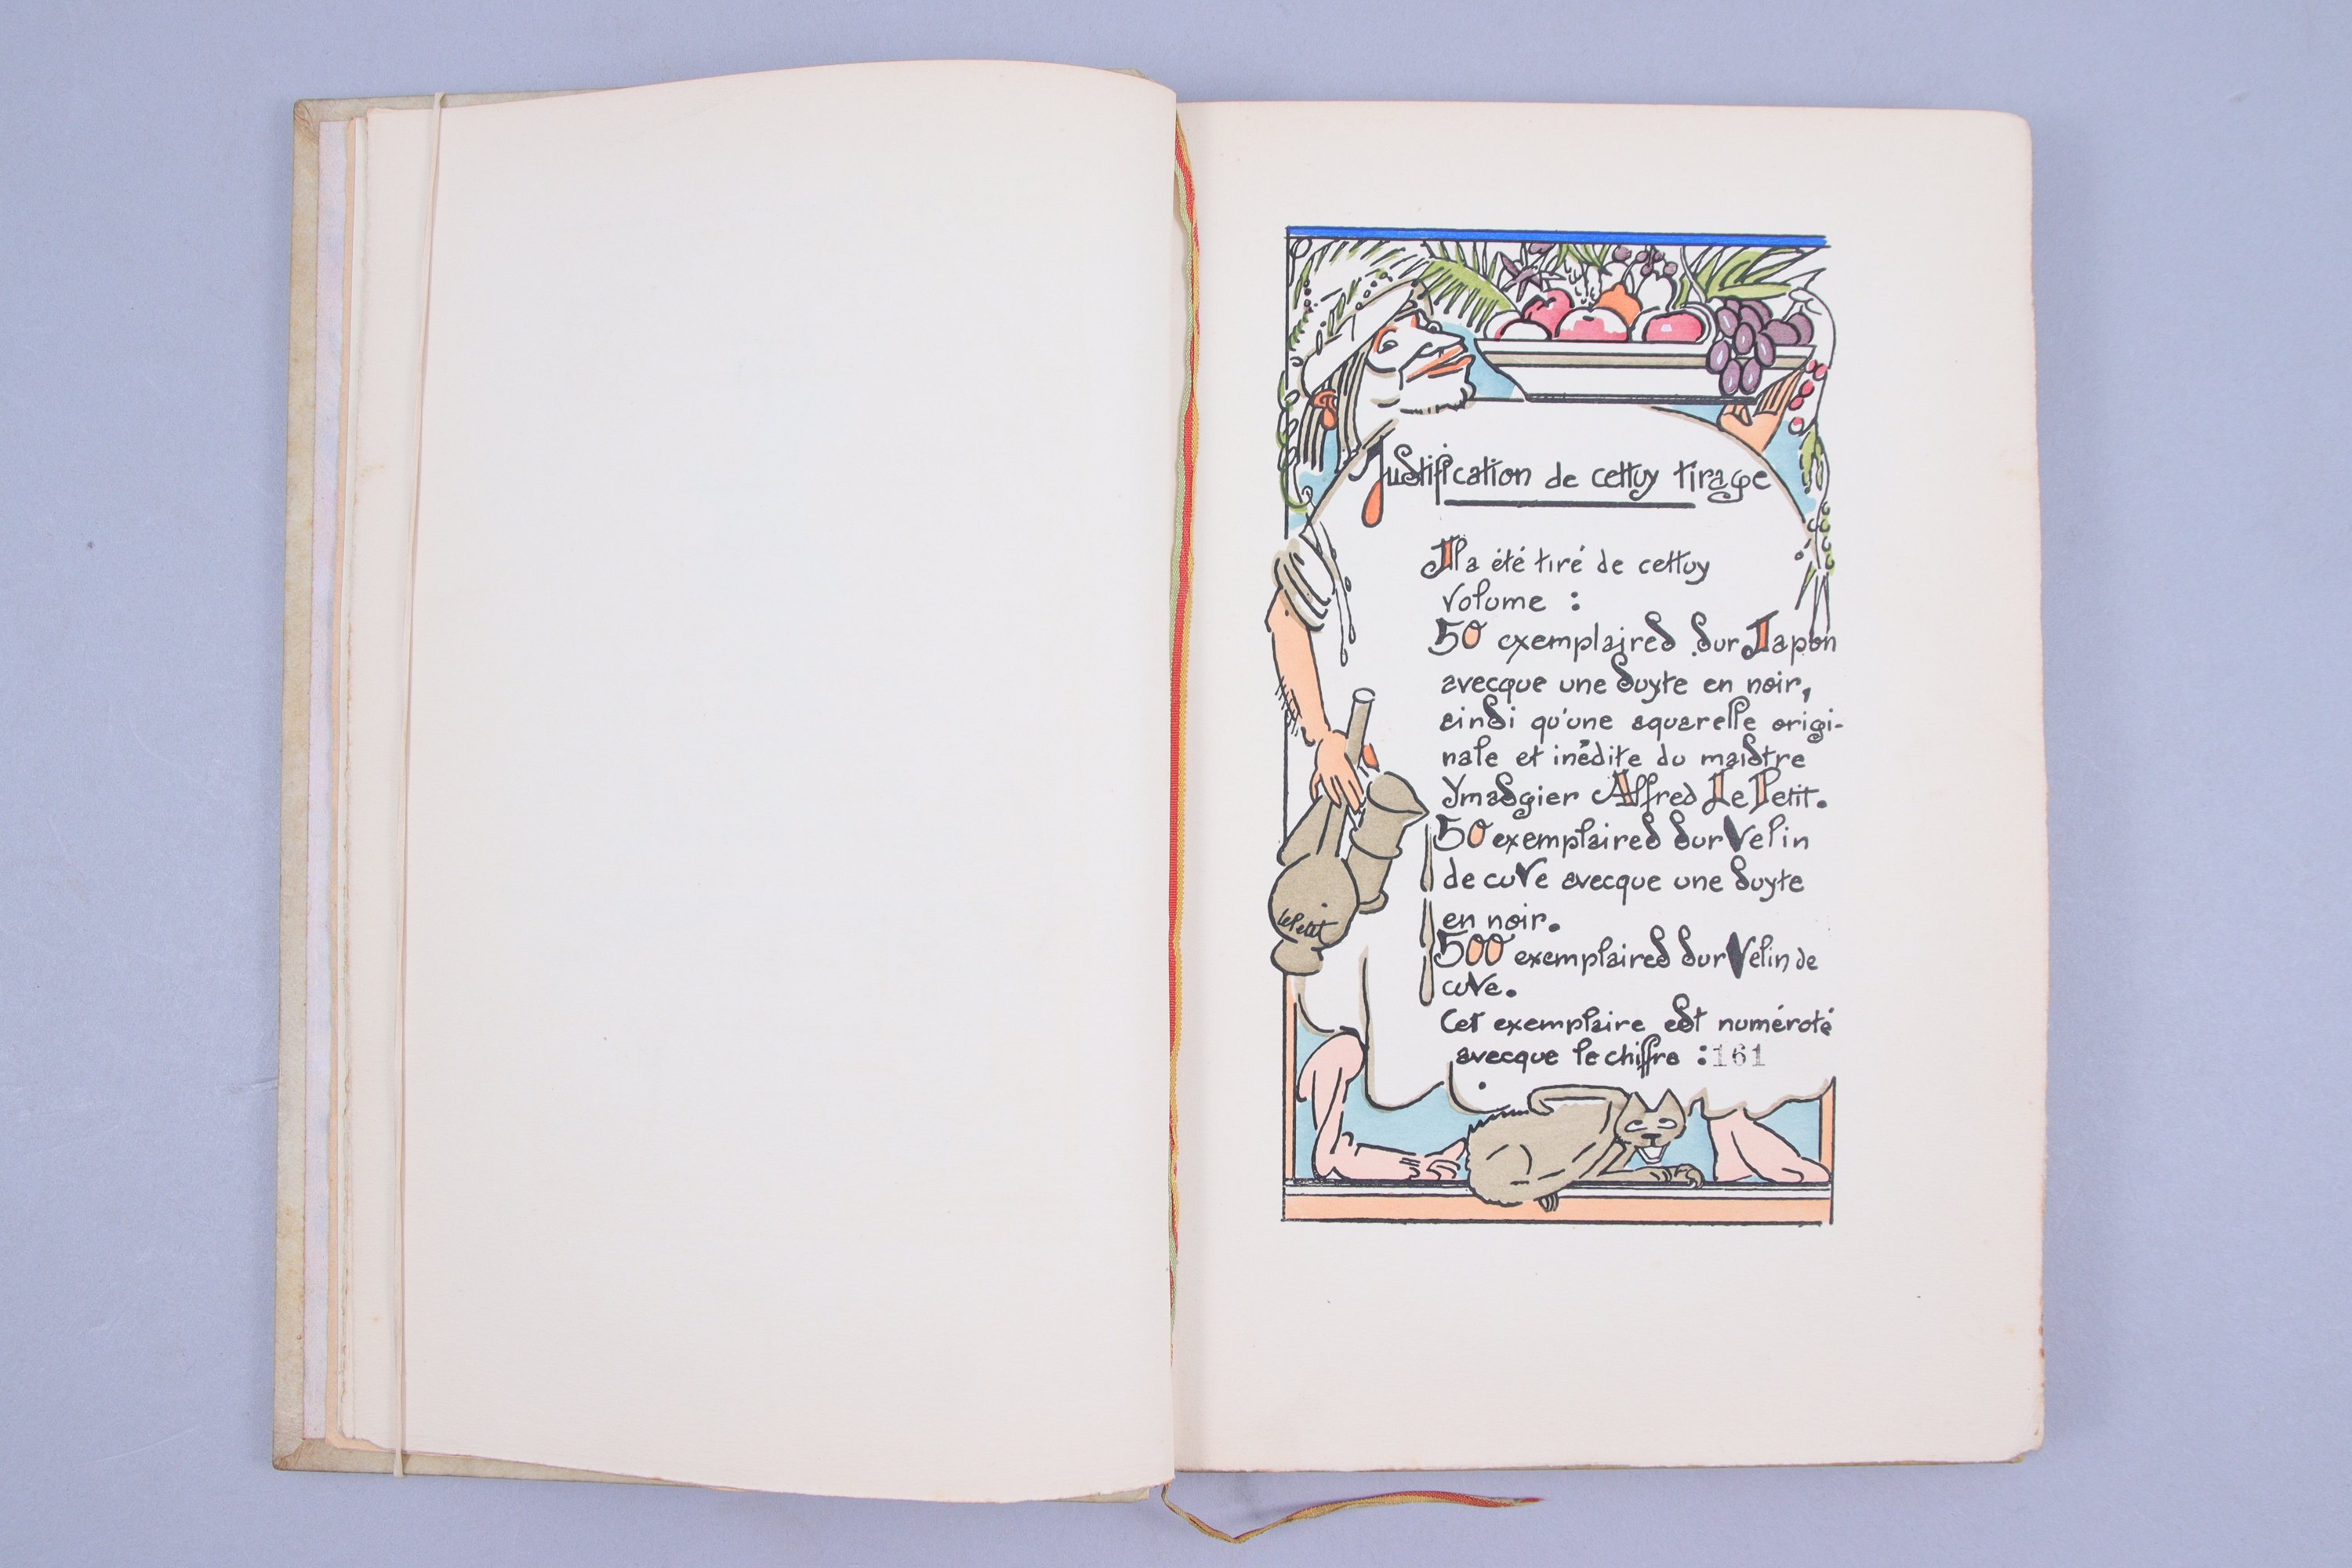 Justification de cettuy tirage
Il a été tiré de cettuy
volume :
50 exemplaires sur Japon
avecque une suyte en noir,
ainsi qu'une aquarelle origi-
nale et inédite du maistre
Ymasgier Alfred Le Petit.
50 exemplaires sur Velin
de cuve avecque une suyte
en noir.
500 exemplaires sur Velin de
cuve.
Cet exemplaire est numéroté
avecque le chiffre : 161
le Petit